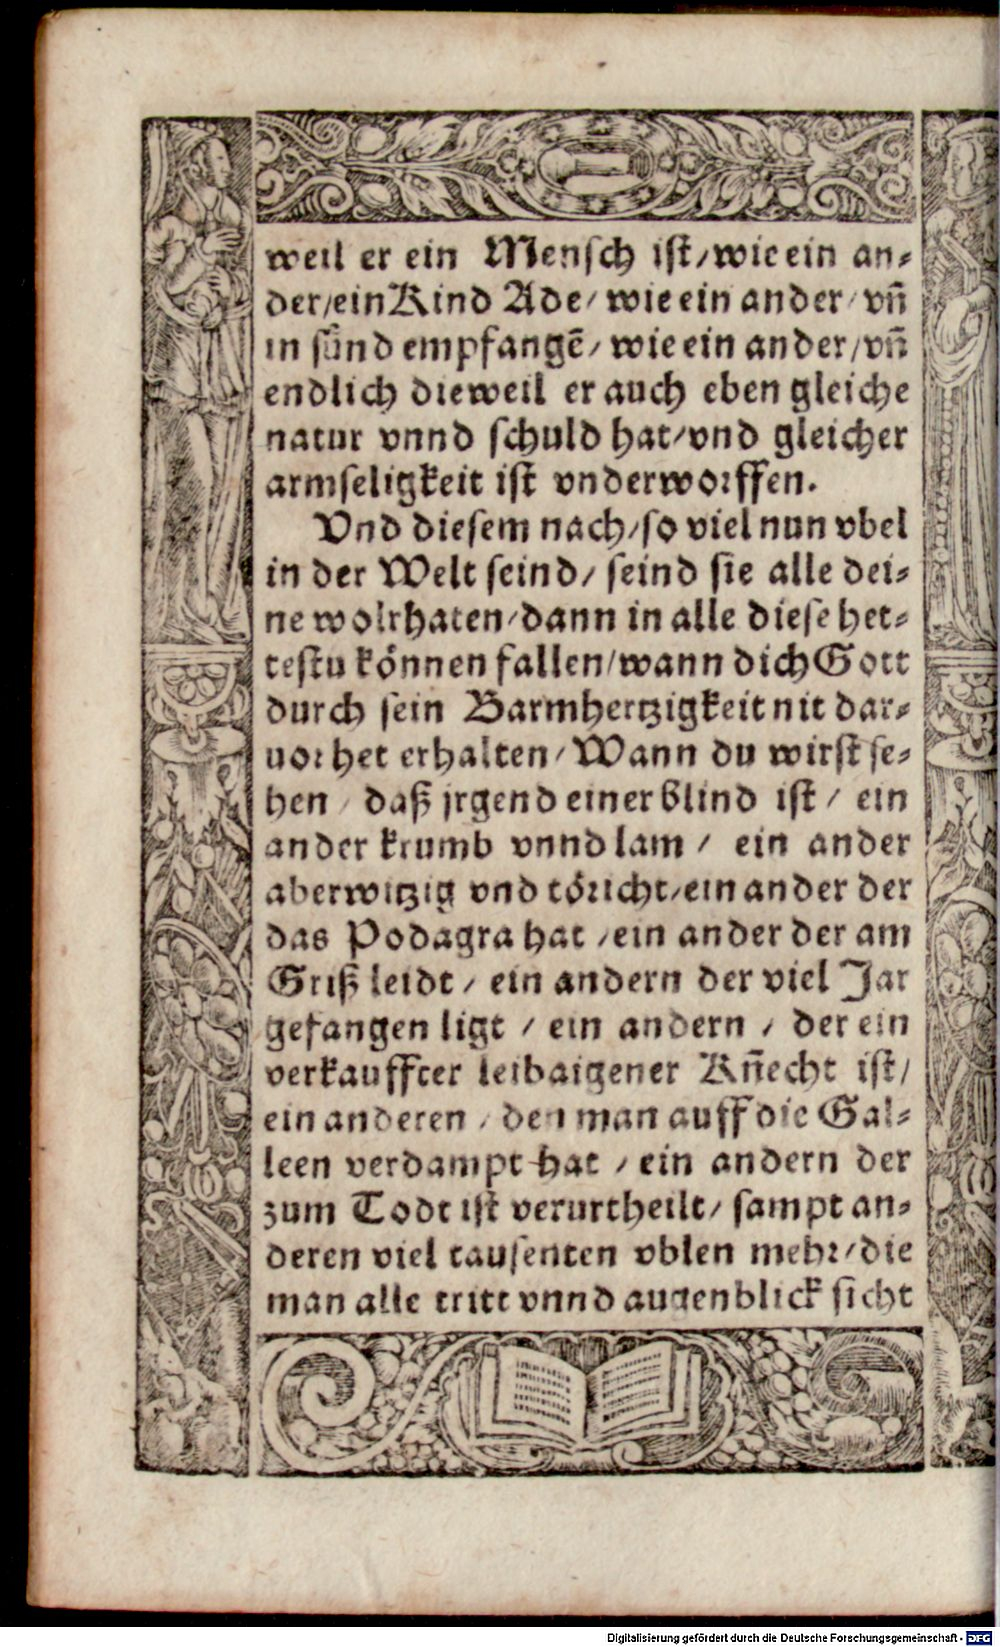 weil er ein Mensch ist/wie ein an⸗
der/ein Kind Ade/ wie ein ander/ vn̄
in sünd empfangē/ wie ein ander/vn̄
endlich dieweil er auch eben gleiche
natur vnnd schuld hat/vnd gleicher
armseligkeit ist vnderworffen.
Vnd diesem nach/so viel nun vbel
in der Welt seind/ seind sie alle dei⸗
ne wolthaten/dann in alle diese het⸗
testu können fallen/wann dich Gott
durch sein Barmhertzigkeit nit dar⸗
uor het erhalten/ Wann du wirst se⸗
hen / daß jrgend einer blind ist / ein
ander krumb vnnd lam / ein ander
aberwitzig vnd töricht/ein ander der
das Podagra hat /ein ander der am
Griß leidt / ein andern der viel Jar
gefangen ligt / ein andern / der ein
verkauffter leibaigener Kn̄echt ist/
ein anderen / den man auff die Gal⸗
leen verdampt hat / ein andern der
zum Todt ist verurtheilt/ sampt an⸗
deren viel tausenten vblen mehr/die
man alle tritt vnnd augenblick sicht
Digitalisierung gefördert durch die Deutsche Forschungsgemeinschaft - DFG